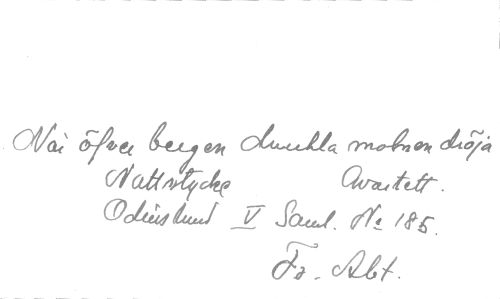 När öfver bergen dunkla molnen dröja
Nattstycke Qvartett.
Odinslund V Saml. No 185.
Fr. Abt.